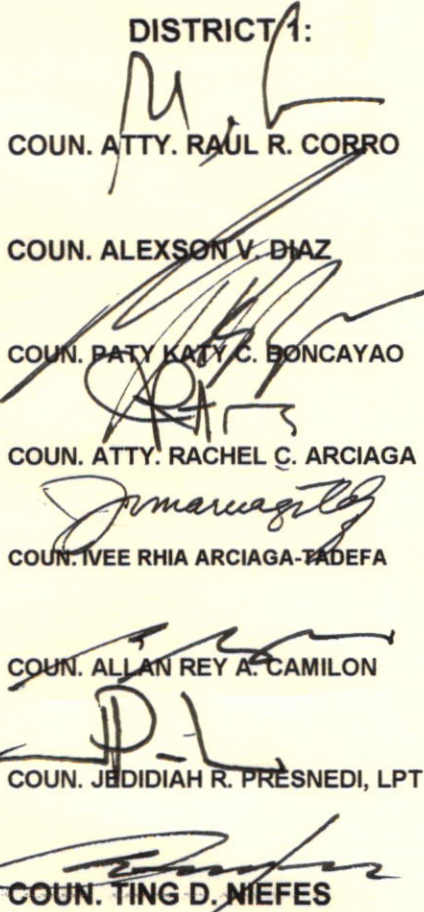 DISTRICT 1:
COUN. ATTY. RAUL R. CORRO
COUN. ALEXSON V. DIAZ
COUN. PATY KATY C. BONCAYAO
COUN. ATTY. RACHEL C. ARCIAGA
COUN. IVEE RHIA ARCIAGA-TADEFA
COUN. ALLAN REY A. CAMILON
COUN. JEDIDIAH R. PRESNEDI, LPT
COUN. TING D. NIEFES